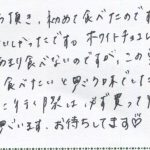 ら頂き、初めて食べたのです
いしかったです。ホワイトチョコレ
あまり食べないのですが、この
食べたいと思う味でした
に行く際は、必ず買って
思います。お待ちしてます♡